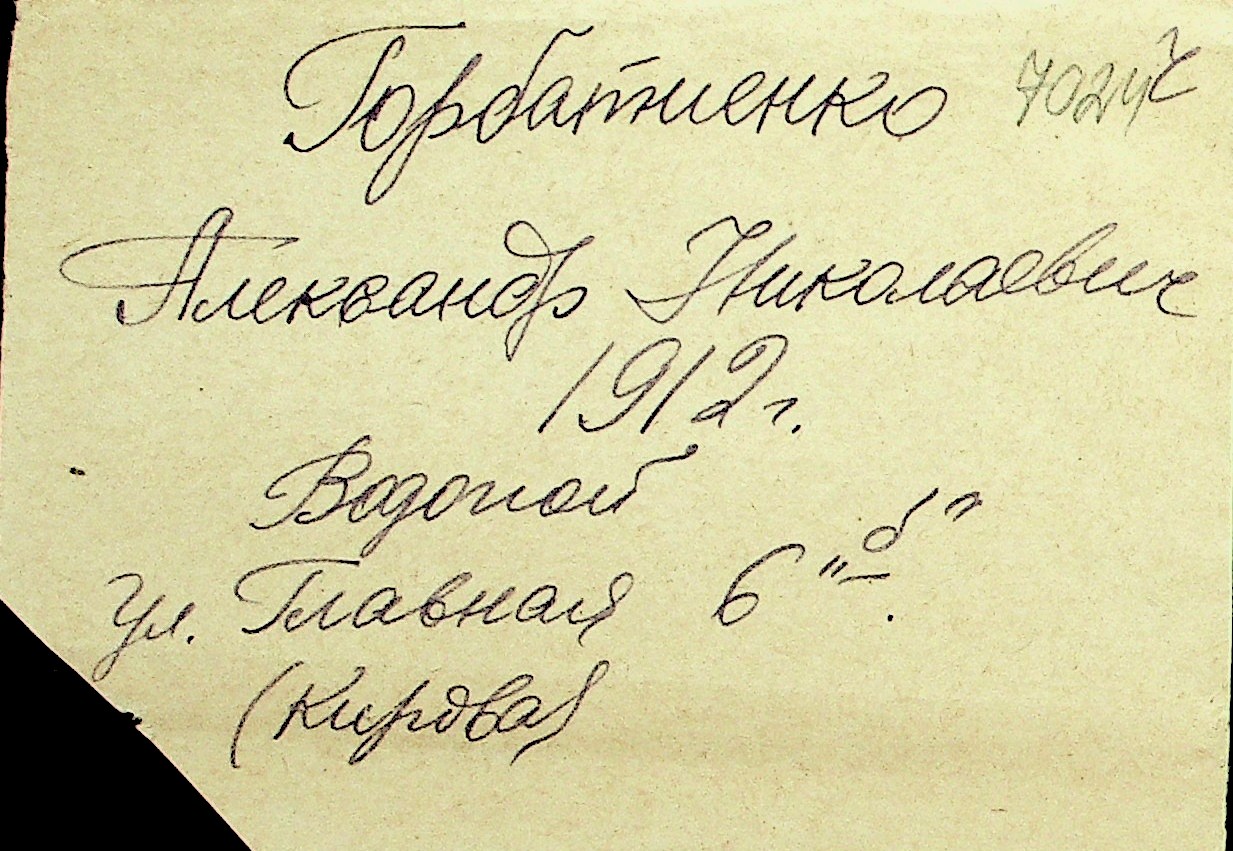 Горбатненко
Александр Николаевич
1912 г.
Водопой
ул. Главная 6 "б"
(Кирова)